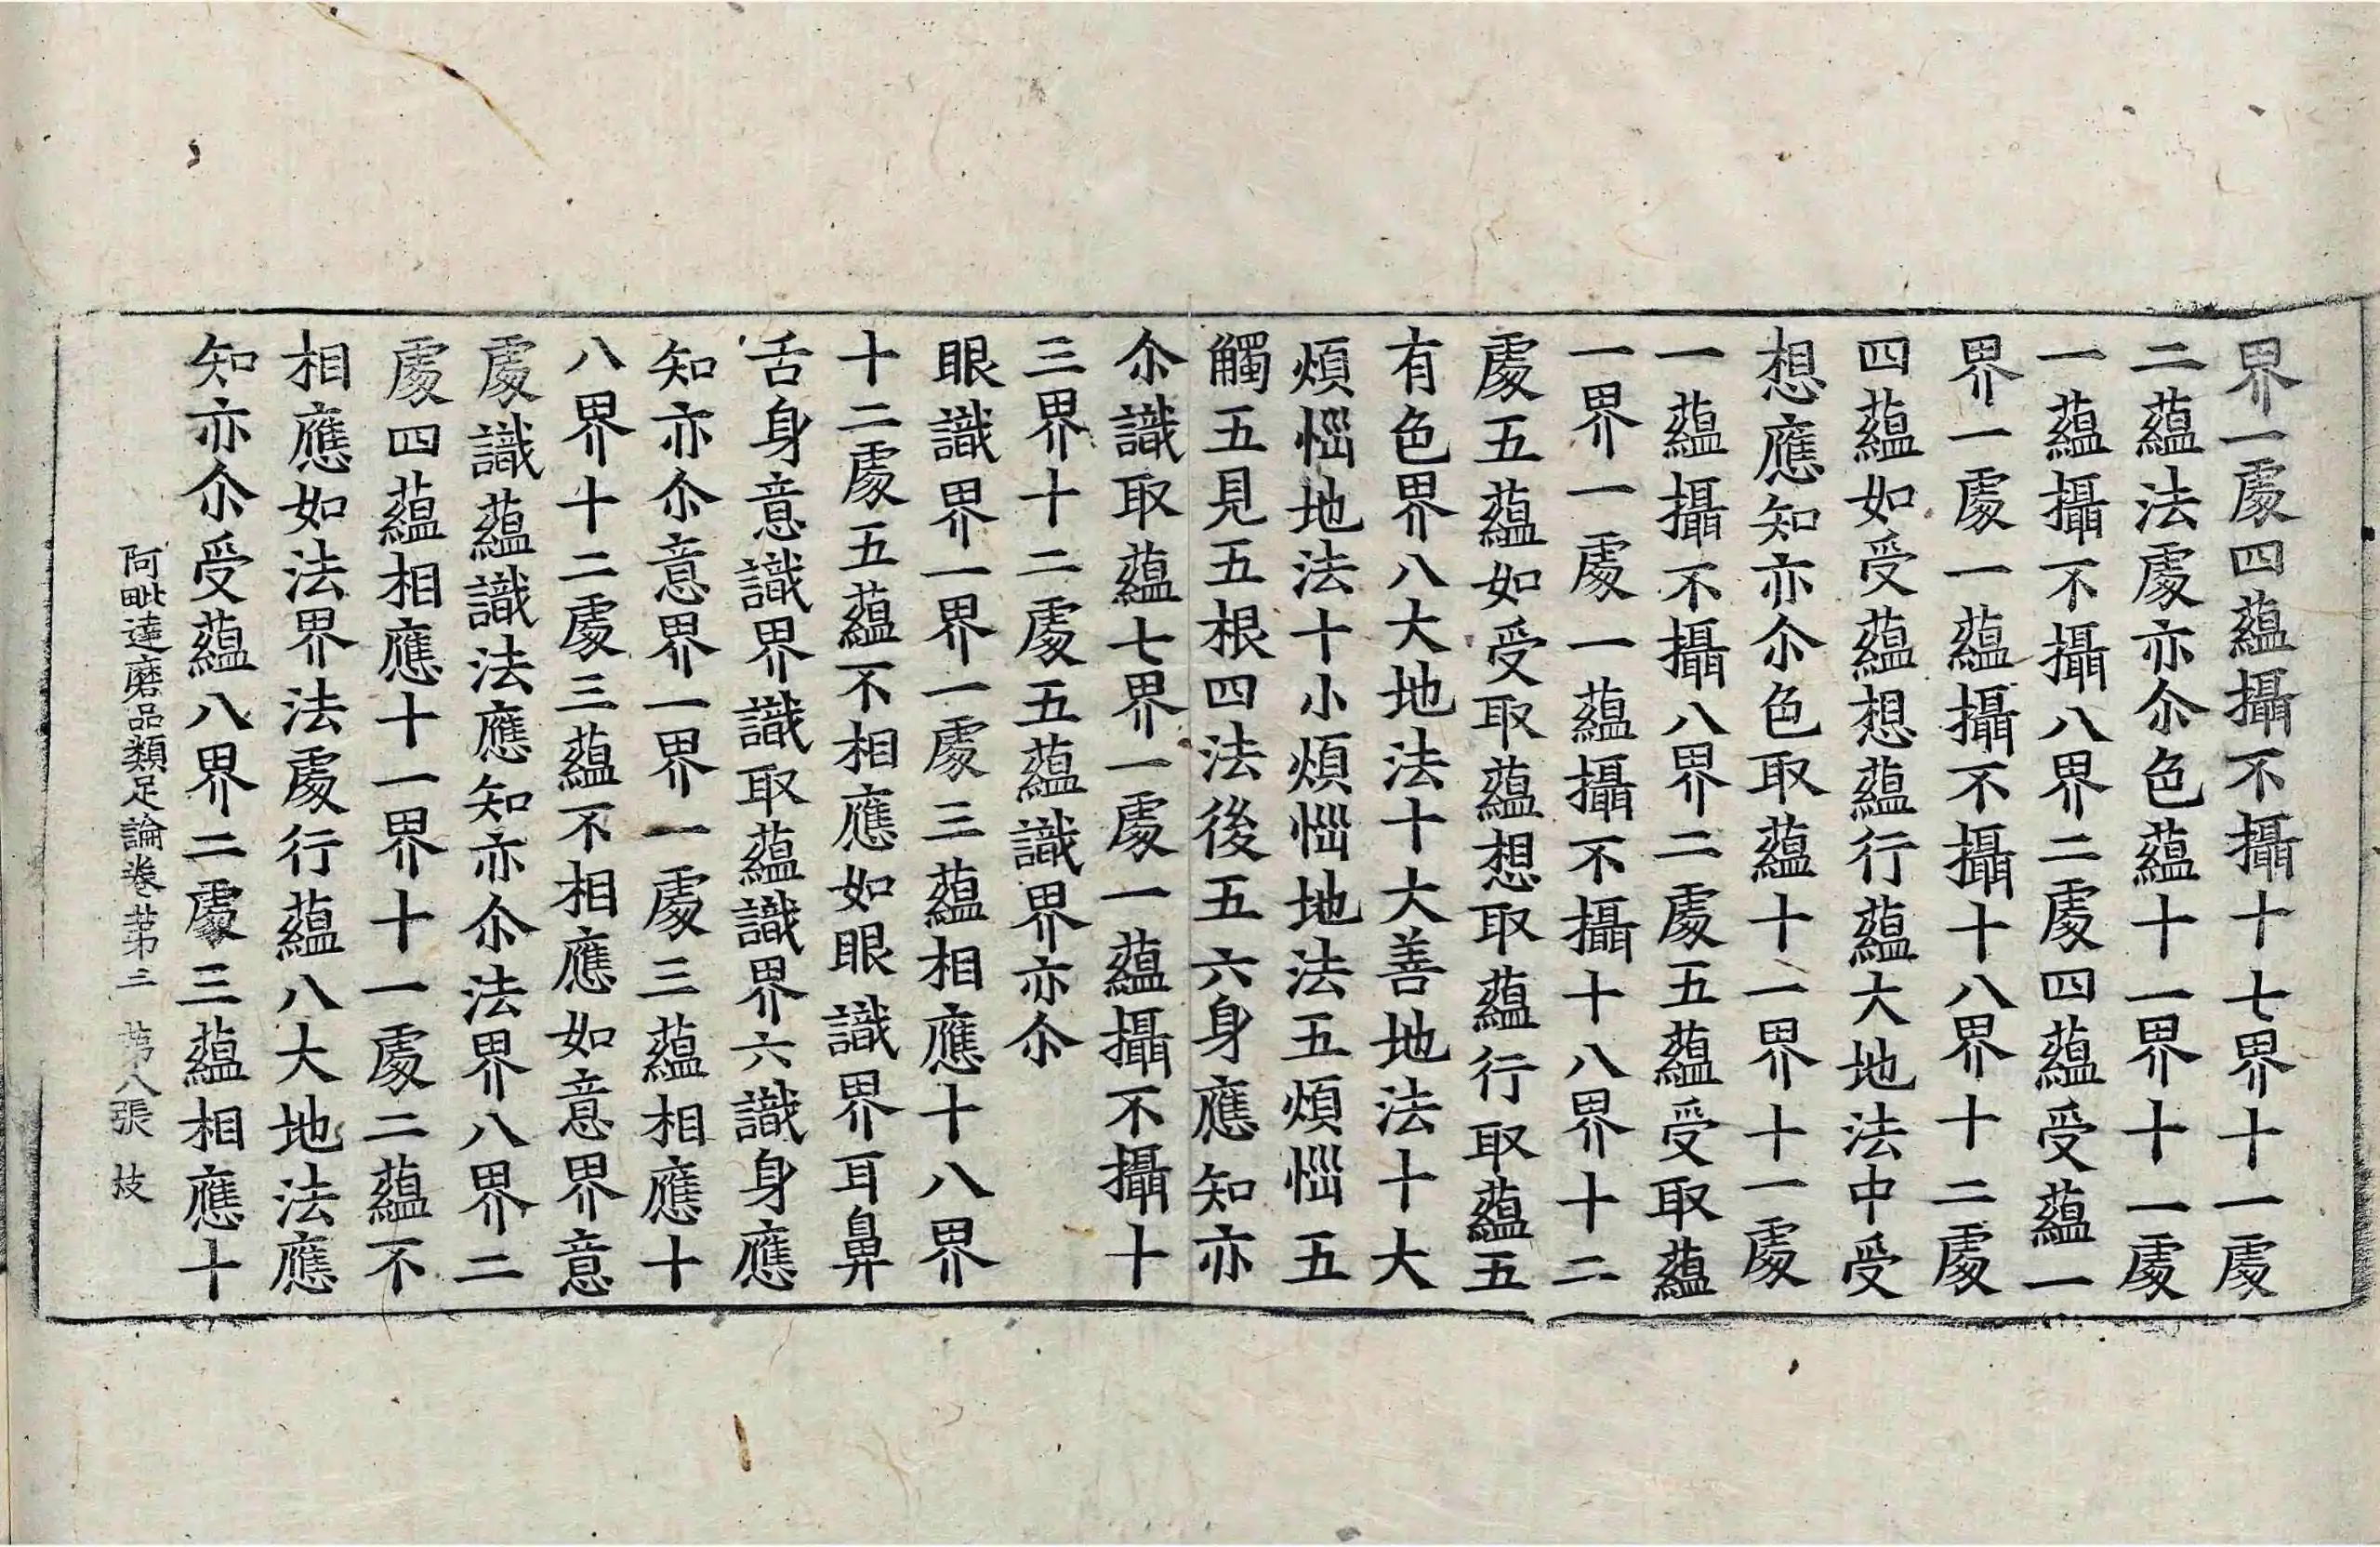 界一處四蘊攝不攝十七界十一處
二蘊法處亦尒色蘊十一界十一處
一蘊攝不攝八界二處四蘊受蘊一
界一處一蘊攝不攝十八界十二處
四蘊如受蘊想蘊行蘊大地法中受
想應知亦尒色取蘊十一界十一處
一蘊攝不攝八界二處五蘊受取蘊
一界一處一蘊攝不攝十八界十二
處五蘊如受取蘊想取蘊行取蘊五
有色界八大地法十大善地法十大
煩惱地法十小煩惱地法五煩惱五
觸五見五根四法後五六身應知亦
尒識取蘊七界一處一蘊攝不攝十
三界十二處五蘊識界亦尒
眼識界一界一處三蘊相應十八界
十二處五蘊不相應如眼識界耳鼻
舌身意識界識取蘊識界六識身應
知亦尒意界一界一處三蘊相應十
八界十二處三蘊不相應如意界意
處識蘊識法應知亦尒法界八界二
處四蘊相應十一界十一處二蘊不
相應如法界法處行蘊八大地法應
知亦尒受蘊八界二處三蘊相應十
阿毗達磨品類足論卷苐三 苐八張 技